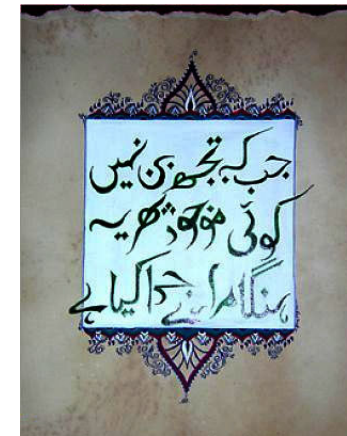 جب کہ تجھ بن نہیں
کوئی موجود پھر یہ
ہنگامہ اے خدا کیا ہے